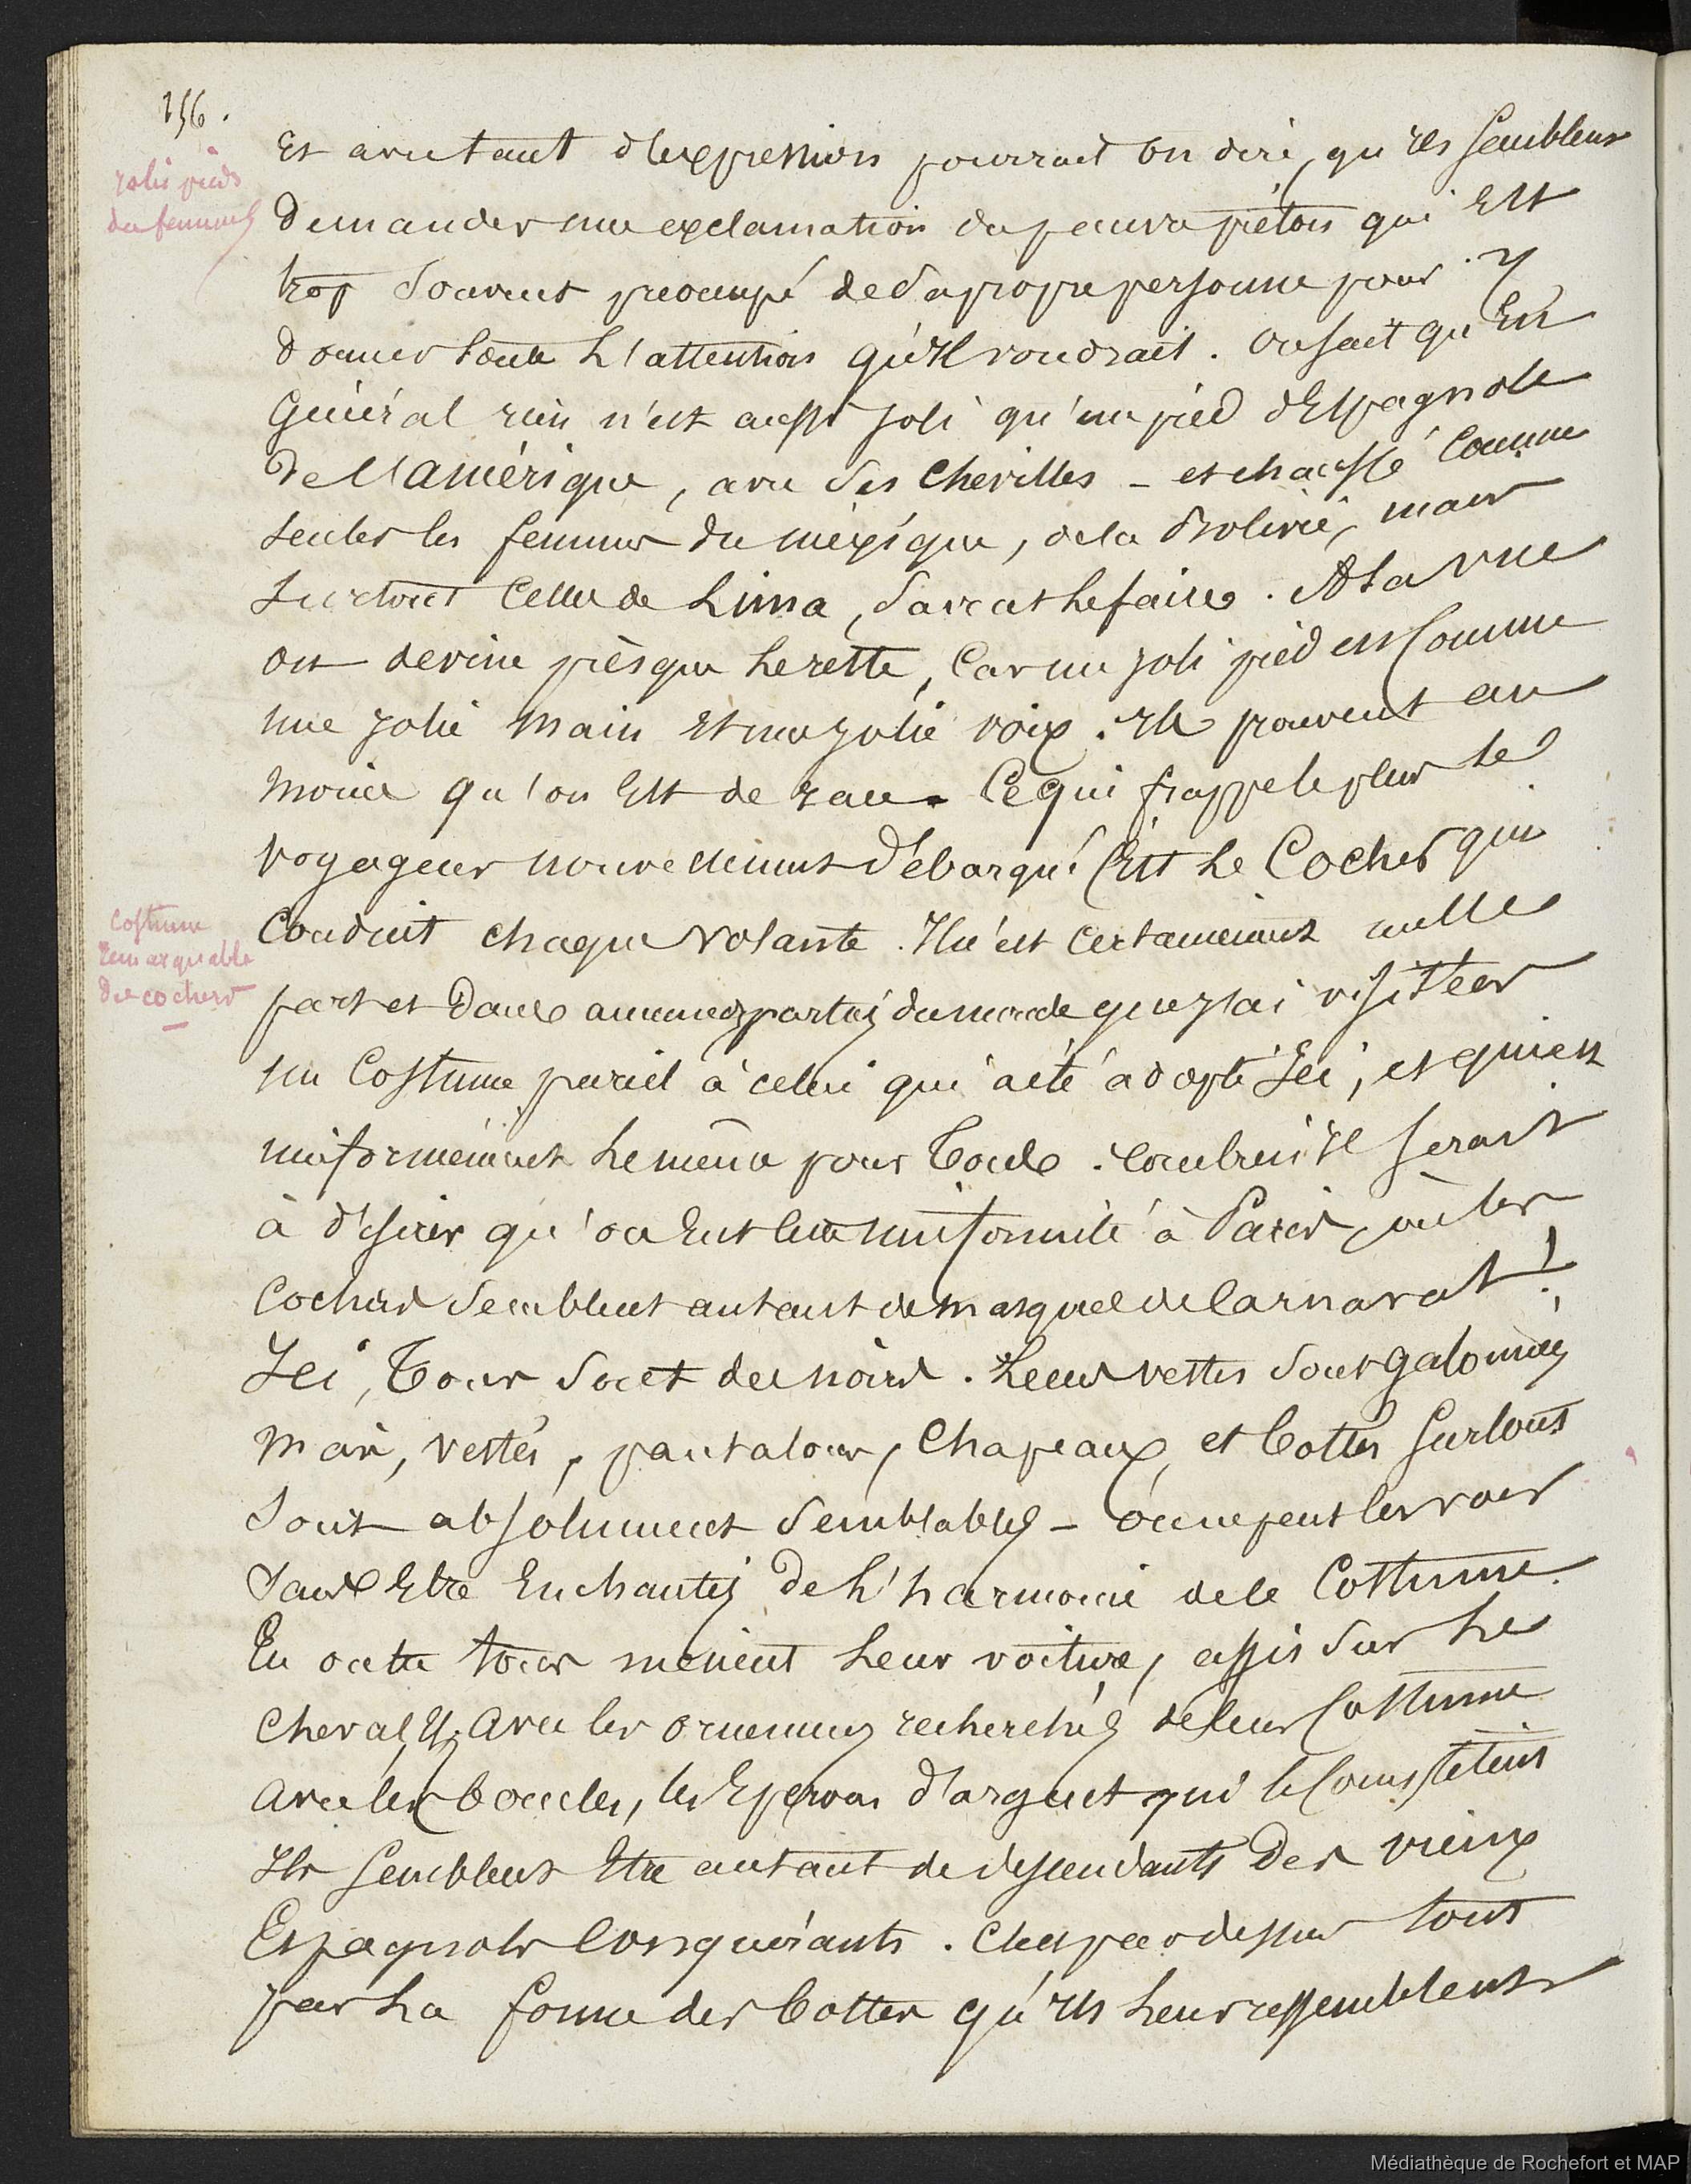 156.
jolis pieds
des femmes
Et avec tant d'expression pourrait on dire, qu'ils semblent
demander une exclamation du pauvre piéton qui Est
trop souvent preocupé de sa propre personne pour y
donner toute L'attention qu'Il voudrait. on sait qu'En
Général rien n'est aussi joli qu'un pied d'Espagnole
de l'amérique, avec ses chevilles - et chaussé comme
seules les femmes du méxique, de la Bolivie, mais
surtout Celles de Lima, savent le faire. A la vue
on devine présque le reste, Car un joli pied est Comme
une jolie main Et une jolie voix. Ils prouvent au
moins qu'on Est de race. Ce qui frappe le plus le
voyageur nouvellement débarqué C'Est le Cocher qui
costume
remarquable
des cochers
Conduit chaque volante. Il n'est certainement nulle
part et dans aucunes parties du monde que j'ai visitées
un Costume pareil à celui qui a été adopté Ici, et qui est
uniformément le même pour Tous. combien il serait
à désirer qu'on Eut cette uniformité à Paris, où les
Cochers semblent autant de masques de Carnaval !
Ici, Tous sont des noirs. Leurs vestes sont galonnées
mais, vestes, pantalons, chapeaux, et bottes surtout
sont absolument semblables - on ne peut les voir
sans Etre Enchantés de L'harmonie de ce Costume.
En outre tous mènent leur voiture, assis sur le
cheval, Et avec les ornements recherchés de leur Costume
avec les boucles, les Eperons d'argent qui le Constituent
Ils semblent Etre autant de descendants des vieux
Espagnols Conquérants. C'est par dessus tout
par La forme des bottes qu'ils leur ressemblent
Médiathèque de Rochefort et MAP